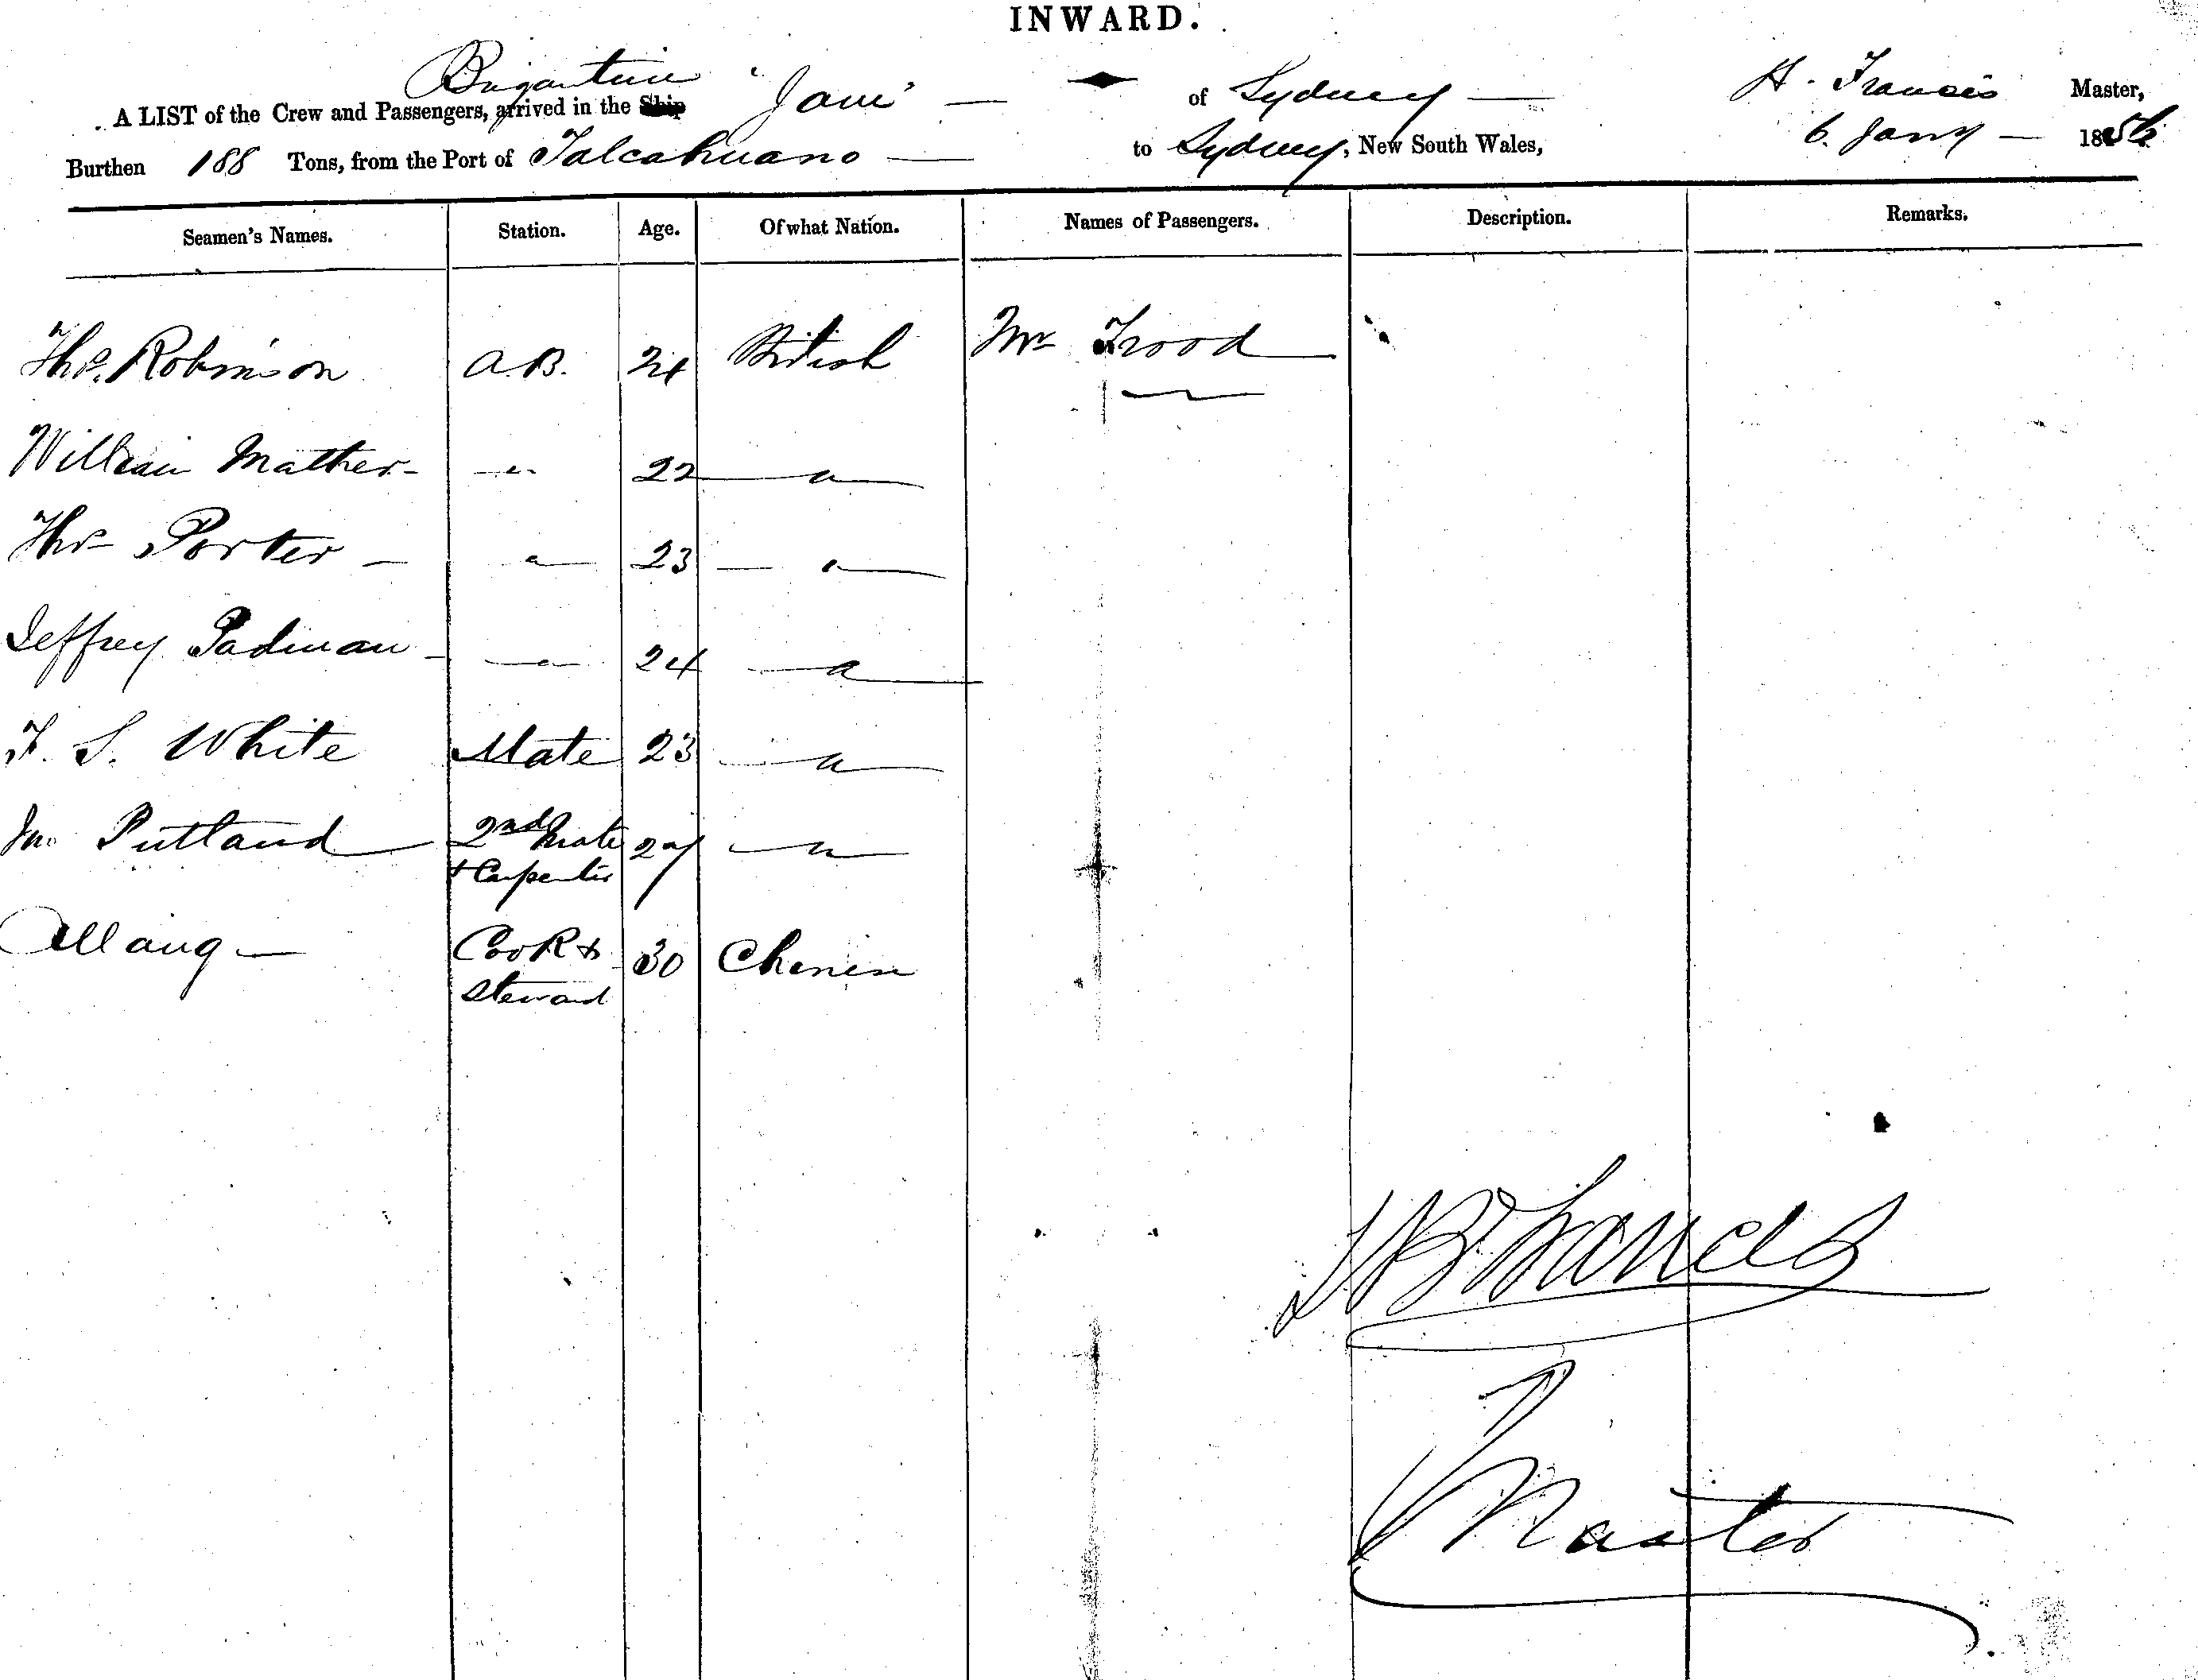 INWARD.
A LIST of the Crew and Passengers, arrived in the Ship Brigantine "Jane" — of Sydney — H. Francis Master,
Burthen 188 Tons, from the Port of Talcahuano — to Sydney, New South Wales, 6. Jany — 1856
Seamen's Names. Station. Age. Of what Nation. Names of Passengers. Description. Remarks.
Thos. Robinson A.B. 24 British Mr Trood
William Mather - — " — 22 — " —
Thos Porter — — " — 23 — " —
Jeffrey Padman — — " — 24 — " —
F. S. White Mate 23 — " —
Jno Putland 2nd Mate 27 — " —
+ Carpenter
Allang — Cook + 30 Chenese
Steward
H B Francis
Master